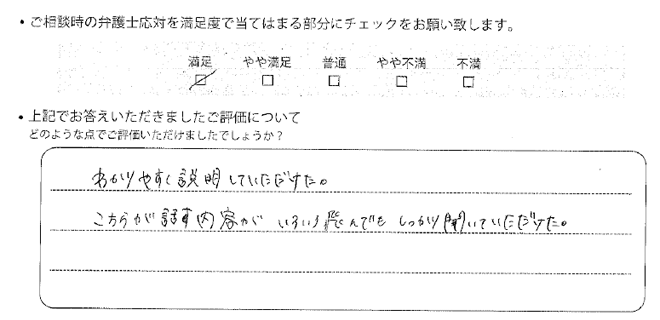 ・ご相談時の弁護士応対を満足度で当てはまる部分にチェックをお願い致します。
満足 やや満足 普通 やや不満 不満
☑ □ □ □ □
・上記でお答えいただきましたご評価について
どのような点でご評価いただけましたでしょうか？
わかりやすく説明していただけた。
こちらが話す内容がいろいろ飛んでもしっかり聞いていただけた。